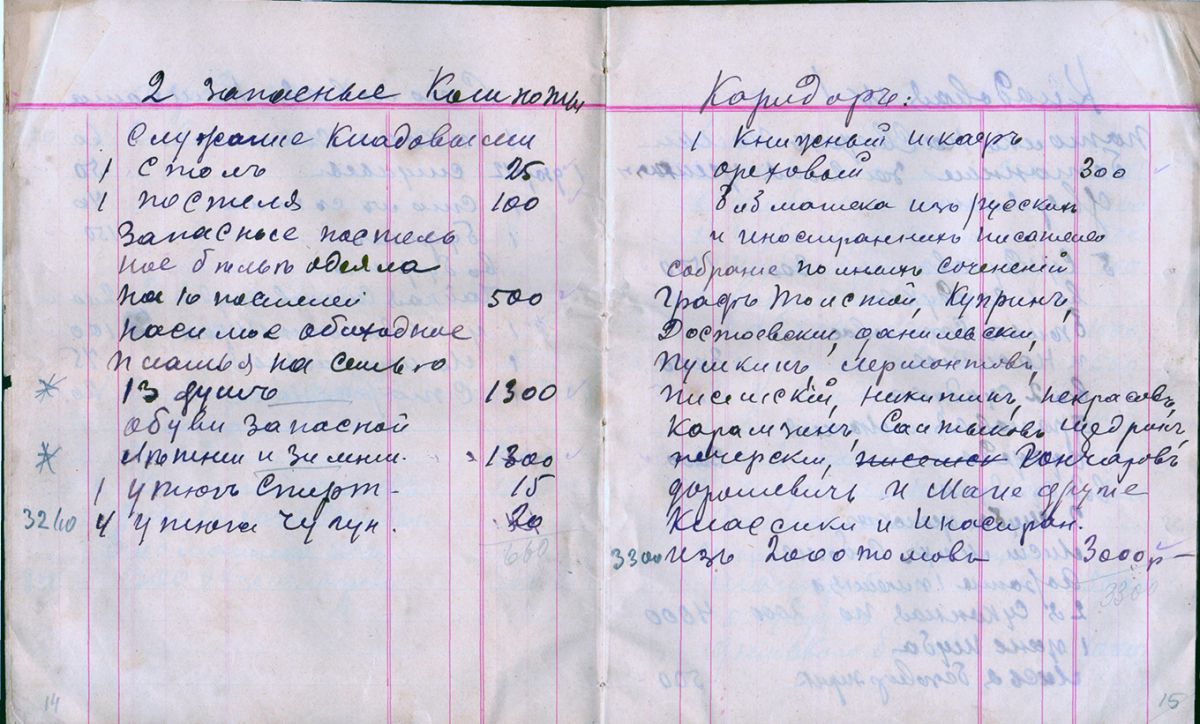 2 Запасные Комнаты
Служащие Кладовыми
1 Столъ 25
1 постеля 100
Запасные постель
ное бѣлье одеяла
на 10 постелей 500
носимое обиходное
платья на семью
13 душъ 1300
обуви запасной
Лѣтнии и Зимнии. 1300
1 утюгъ Спирт- 15
3260 4 утюга Чугун. 20
660
14
Каридоръ:
1 Книжный шкафъ
ореховый 300
Библиатека изъ русскихъ
и Иностранныхъ писателей
собрание полныхъ Сочений
Графъ Толстой, Купринъ,
Достоевский, Данилевский,
Пушкинъ, Лермонтовъ,
Писемский, Никитинъ, Некрасовъ,
Карамзинъ, Салтыковъ Щедринъ,
печерский, писемск Кончаровъ
Дорошевичъ и Многие другие
Классики и Иностран.
3300 изъ 2000 томовъ 3000р-
3300
15